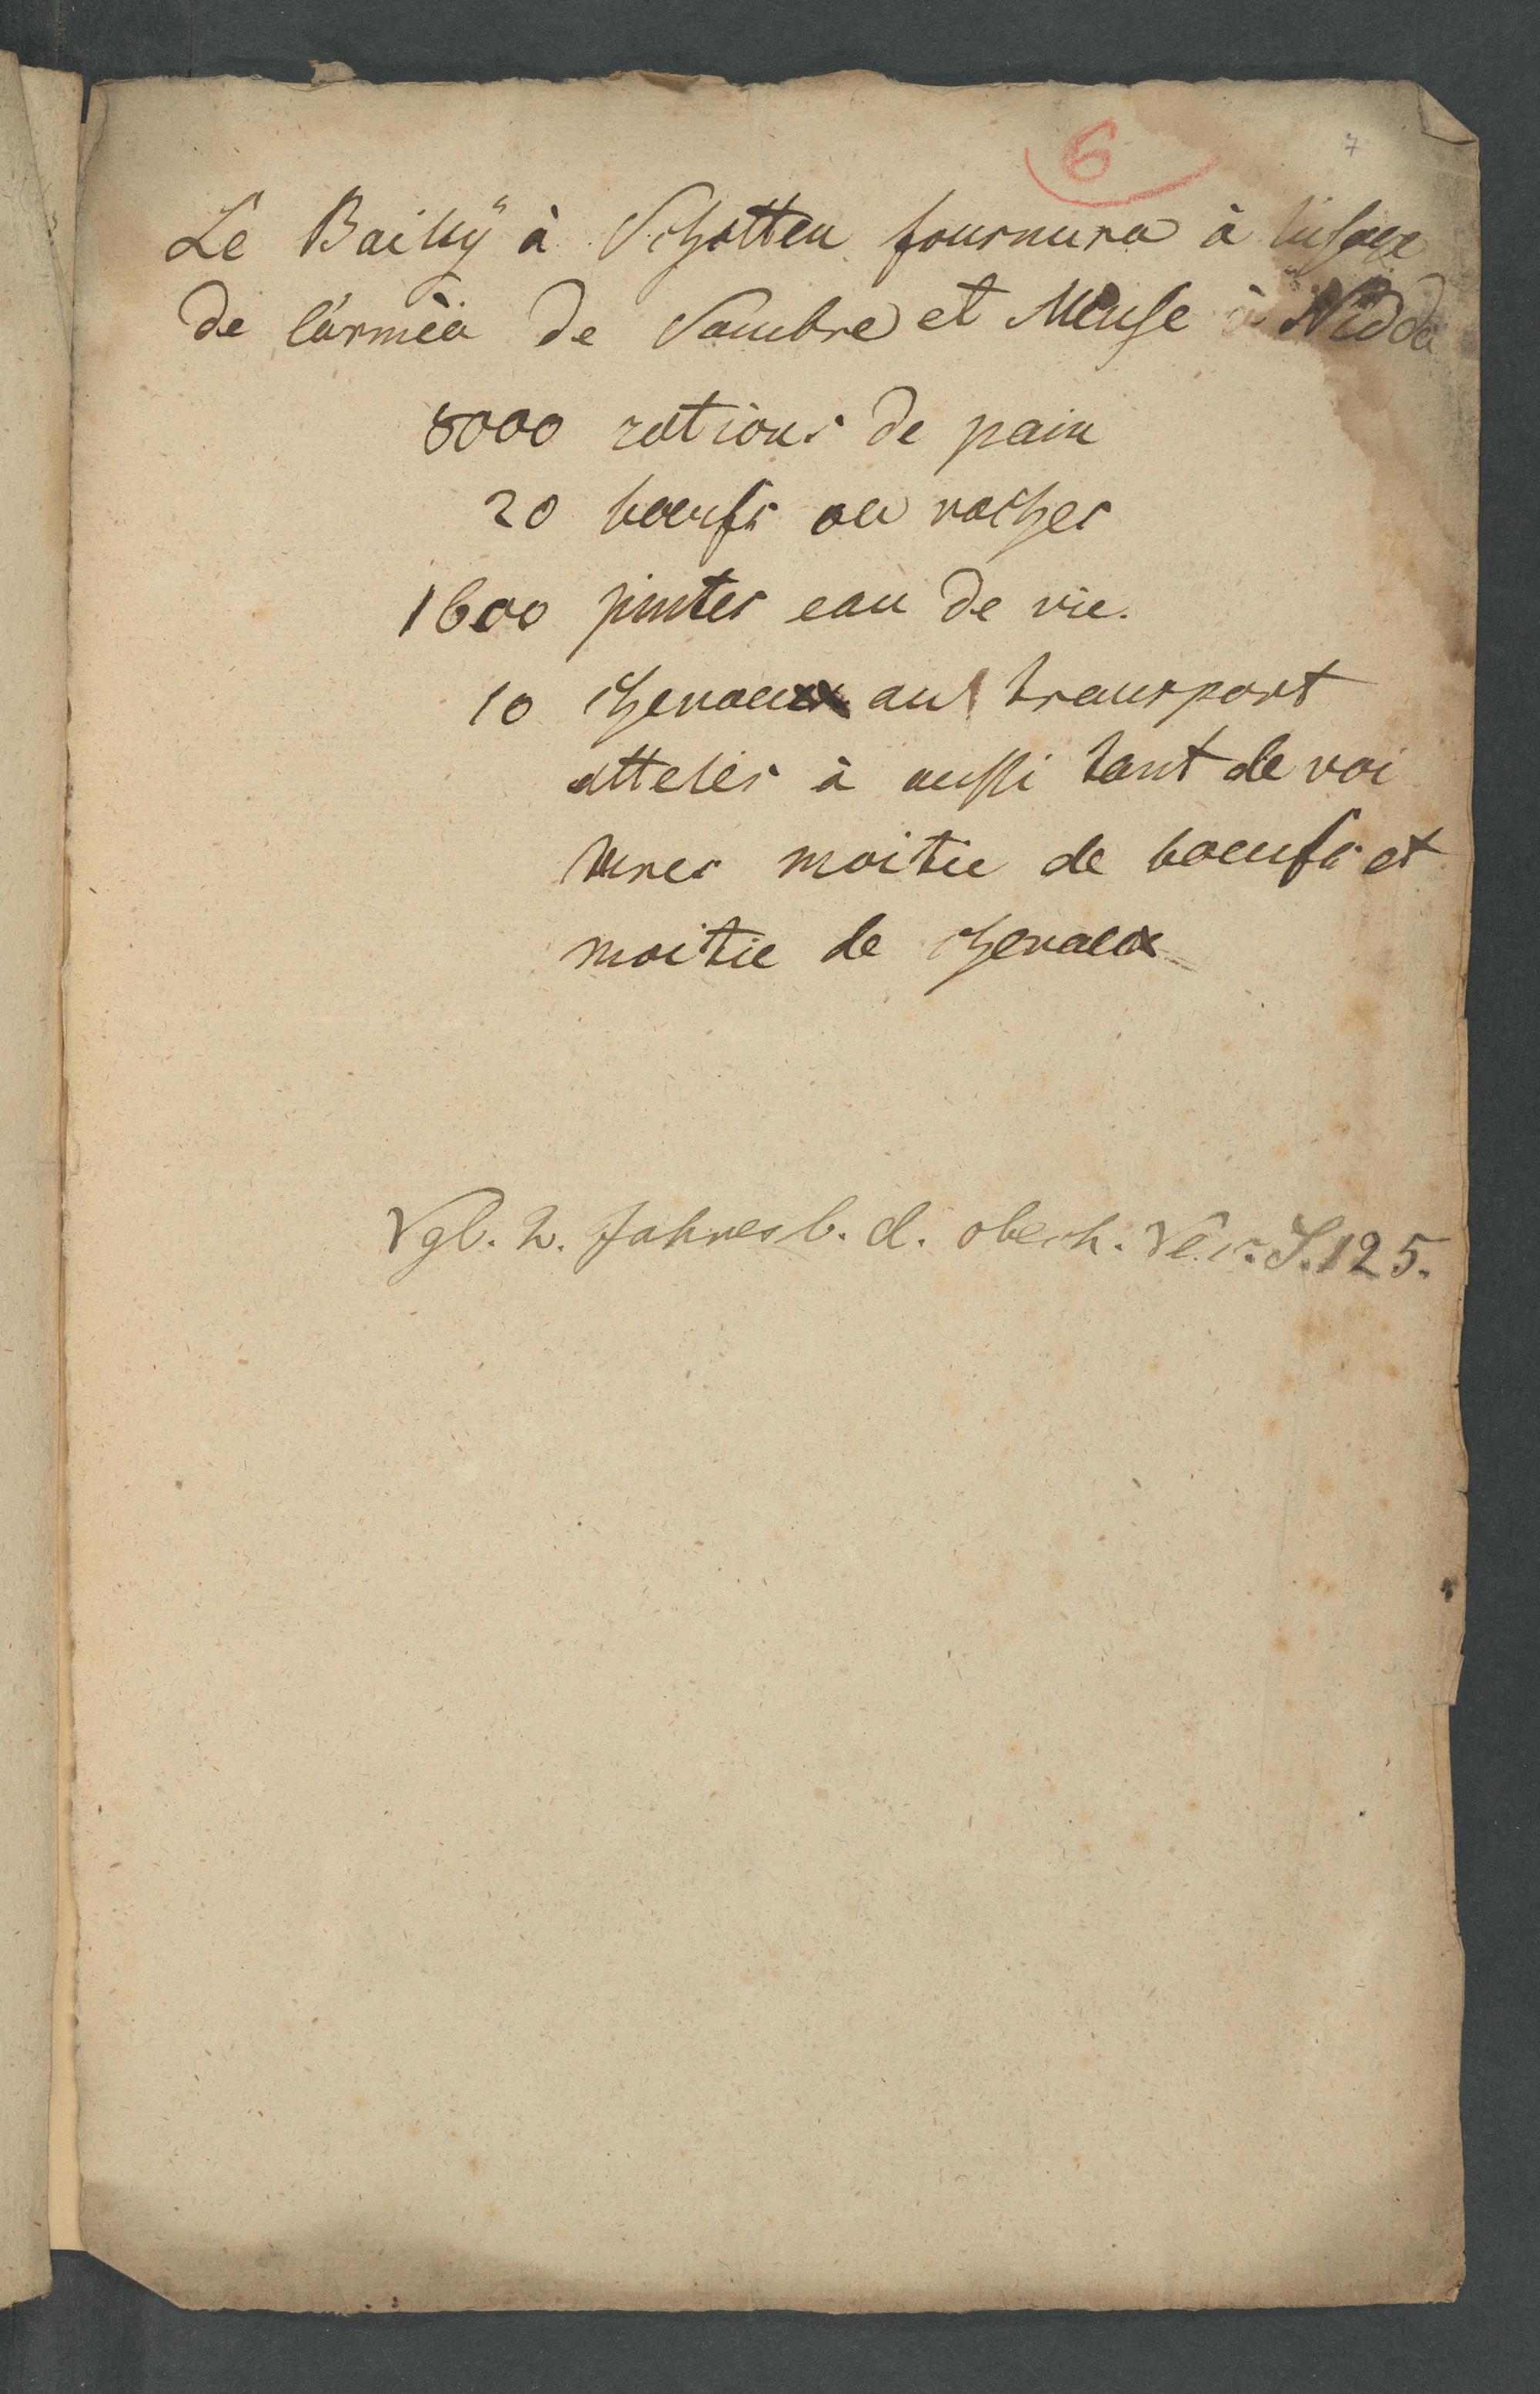 6
7
Le Bailly à Schotten fournira à l'usage
de l'armèe de Sambre et Meuse à Nidda
8000 rations de pain
20 boeufs ou vaches
1600 pintes eau de vie.
10 chevaux au transport
attelés à aussi tant de voi
tures moitie de boeufs et
moitie de chevaux
Vgl. 2. Jahresb. d. oberh. Ver. S. 125.